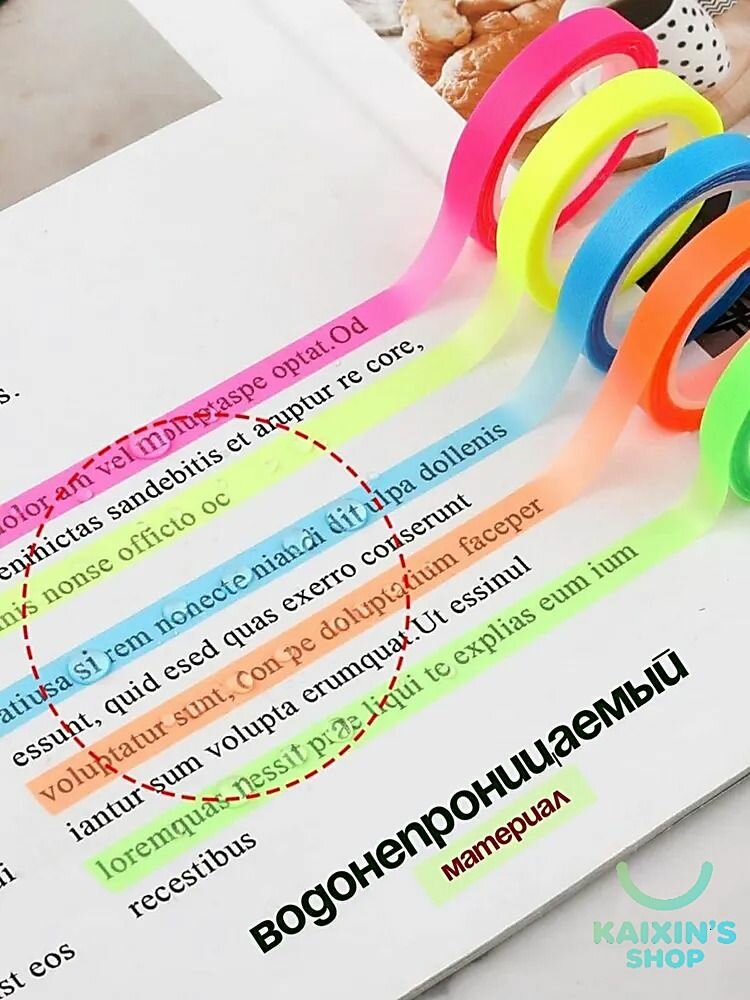 olor am vel moluptaspe optat.Od
eninictas sandebitis et aruptur re core,
nis nonse officto oc
atiusa si rem nonecte niandi dit ulpa dollenis
essunt, quid esed quas exerro conserunt
voluptatur sunt, con pe doluptatium faceper
iantur sum volupta erumquat.Ut essinul
loremquas nessit prae liqui te explias eum ium
recestibus
st eos
водонепроницаемый
материал
KAIXIN'S
SHOP